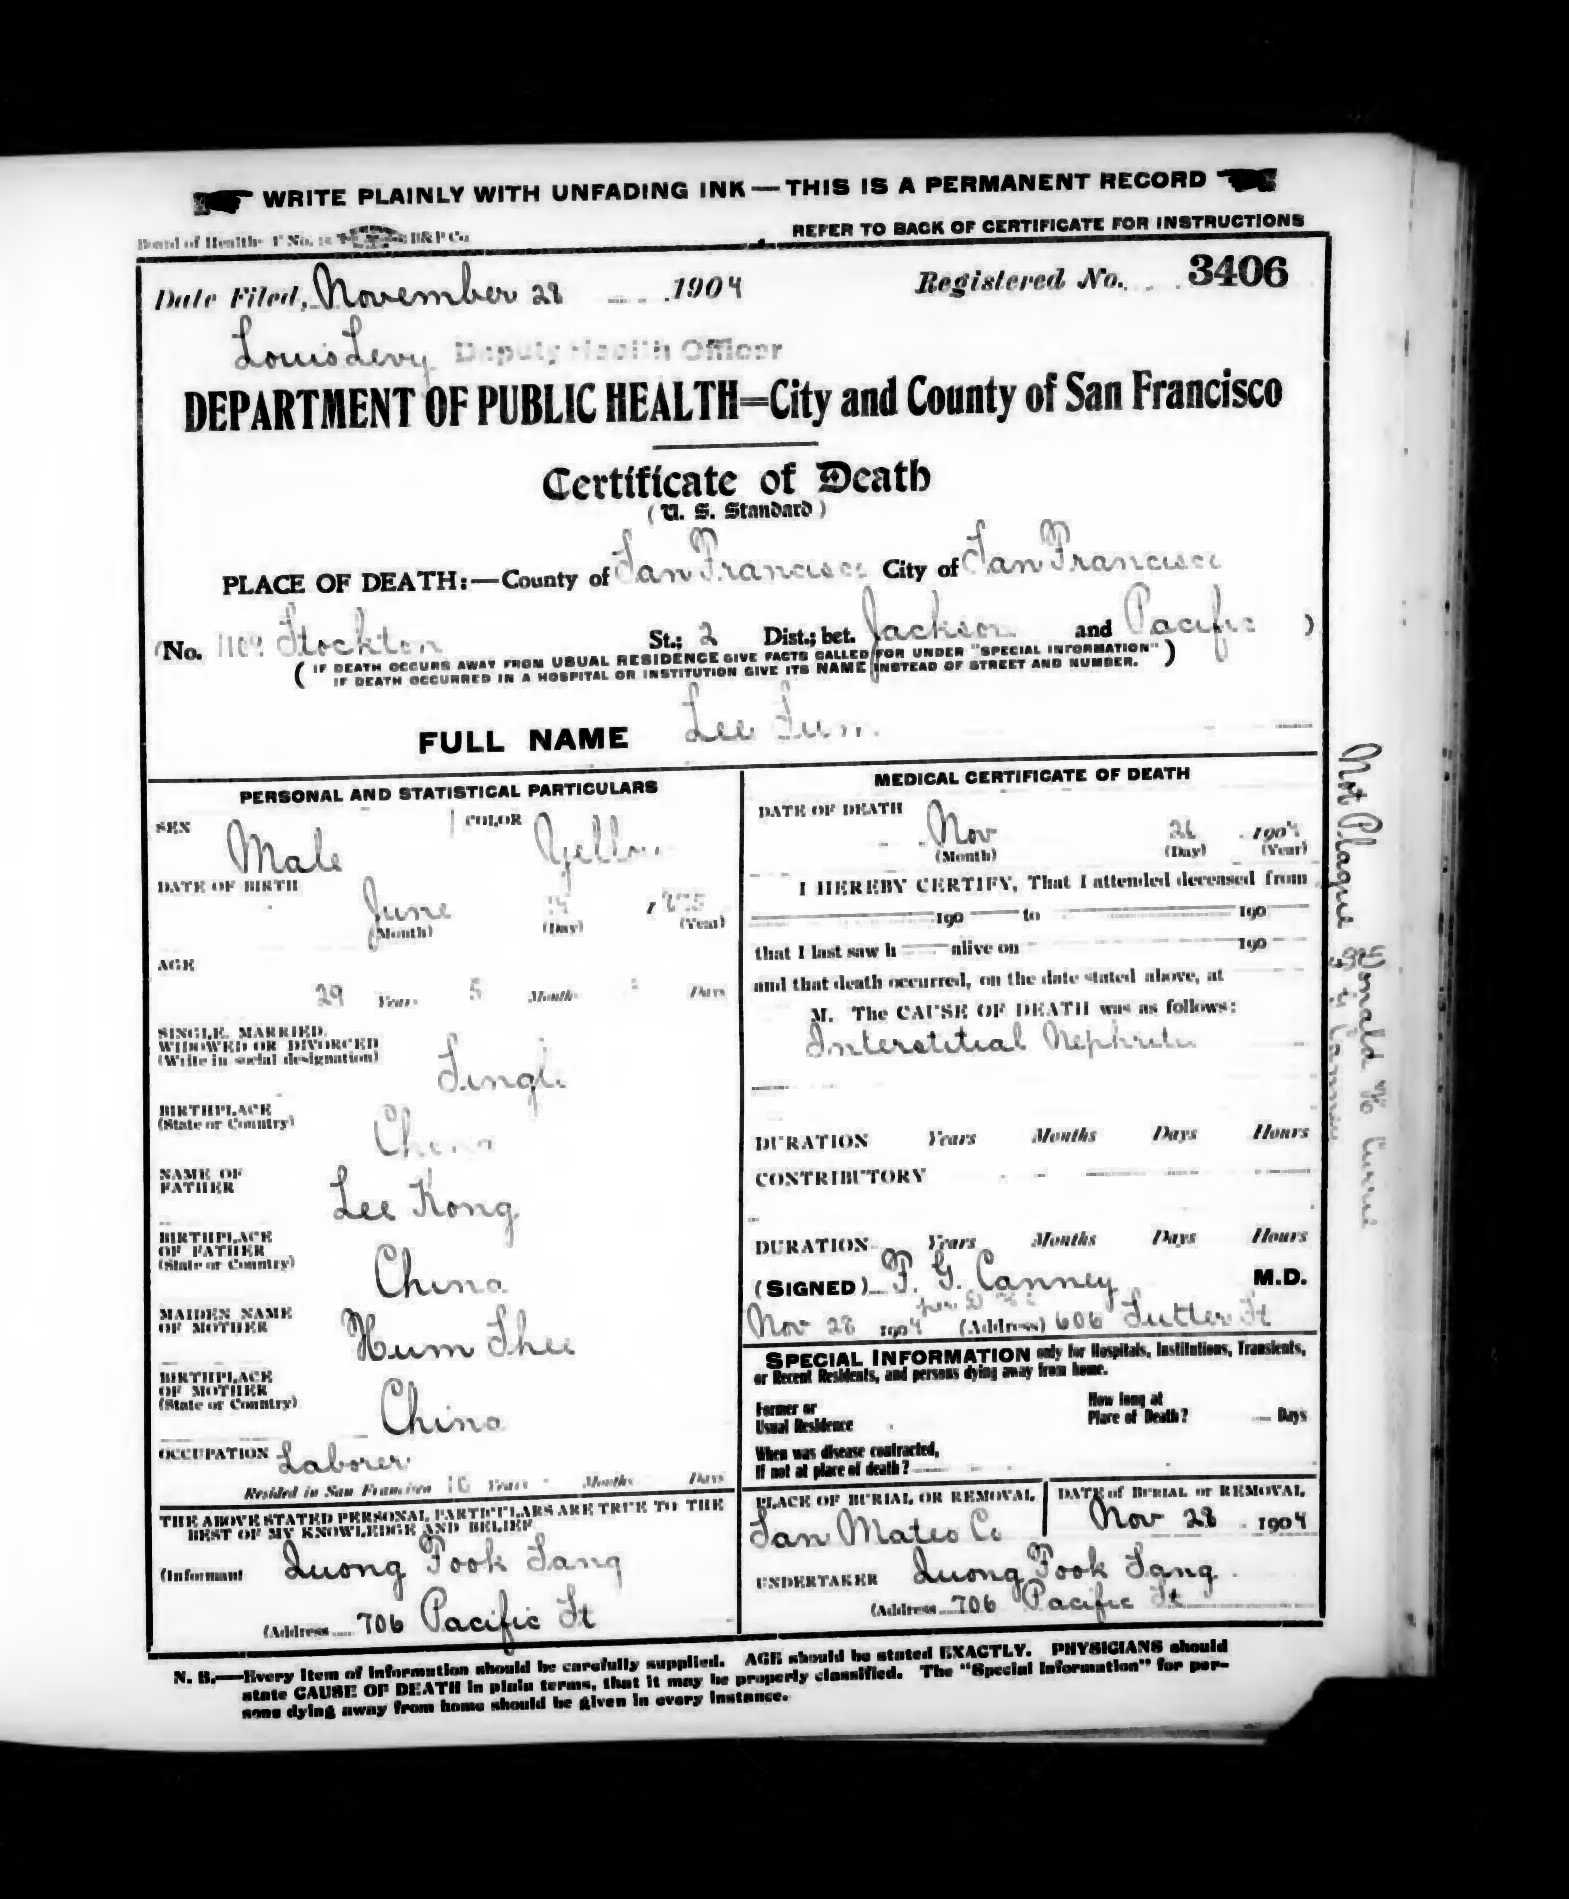 WRITE PLAINLY WITH UNFADING INK — THIS IS A PERMANENT RECORD
REFER TO BACK OF CERTIFICATE FOR INSTRUCTIONS
Board of Health F No. H&P Co
Date Filed, November 28 1904 Registered No. 3406
Louis Levy Deputy Health Officer
DEPARTMENT OF PUBLIC HEALTH=City and County of San Francisco
Certificate of Death
(U. S. Standard)
PLACE OF DEATH:—County of San Francisco City of San Francisco
(No. Stockton St.; 2 Dist.; bet. Jackson and Pacific )
( IF DEATH OCCURS AWAY FROM USUAL RESIDENCE GIVE FACTS CALLED FOR UNDER "SPECIAL INFORMATION" )
IF DEATH OCCURRED IN A HOSPITAL OR INSTITUTION GIVE ITS NAME INSTEAD OF STREET AND NUMBER.
FULL NAME Lee Sum
PERSONAL AND STATISTICAL PARTICULARS
SEX Male COLOR Yellow
DATE OF BIRTH
June 1875
(Month) (Day) (Year)
AGE
29 Years 5 Months Days
SINGLE, MARRIED,
WIDOWED OR DIVORCED
(Write in social designation) Single
BIRTHPLACE
(State or Country) China
NAME OF
FATHER Lee Kong
BIRTHPLACE
OF FATHER
(State or Country) China
MAIDEN NAME
OF MOTHER Hum Shee
BIRTHPLACE
OF MOTHER
(State or Country) China
OCCUPATION Laborer
Resided in San Francisco 10 Years Months Days
THE ABOVE STATED PERSONAL PARTICULARS ARE TRUE TO THE
BEST OF MY KNOWLEDGE AND BELIEF
(Informant Quong Fook Sang
(Address 706 Pacific St
MEDICAL CERTIFICATE OF DEATH
DATE OF DEATH
Nov 26 1904
(Month) (Day) (Year)
I HEREBY CERTIFY, That I attended deceased from
190 to 190
that I last saw h alive on 190
and that death occurred, on the date stated above, at
M. The CAUSE OF DEATH was as follows:
Interstitial Nephritis
DURATION Years Months Days Hours
CONTRIBUTORY
DURATION Years Months Days Hours
(SIGNED) F. G. Canney M.D.
Nov 28 1904 (Address) 606 Sutter St
SPECIAL INFORMATION only for Hospitals, Institutions, Transients,
or Recent Residents, and persons dying away from home.
Former or
Usual Residence
How long at
Place of Death? Days
When was disease contracted,
If not at place of death?
PLACE OF BURIAL OR REMOVAL
San Mateo Co
DATE of BURIAL or REMOVAL
Nov 28 1904
UNDERTAKER Quong Fook Sang
(Address 706 Pacific St
N. B.—Every item of information should be carefully supplied. AGE should be stated EXACTLY. PHYSICIANS should
state CAUSE OF DEATH in plain terms, that it may be properly classified. The "Special Information" for per-
sons dying away from home should be given in every instance.
Not Plague Donald H Currie